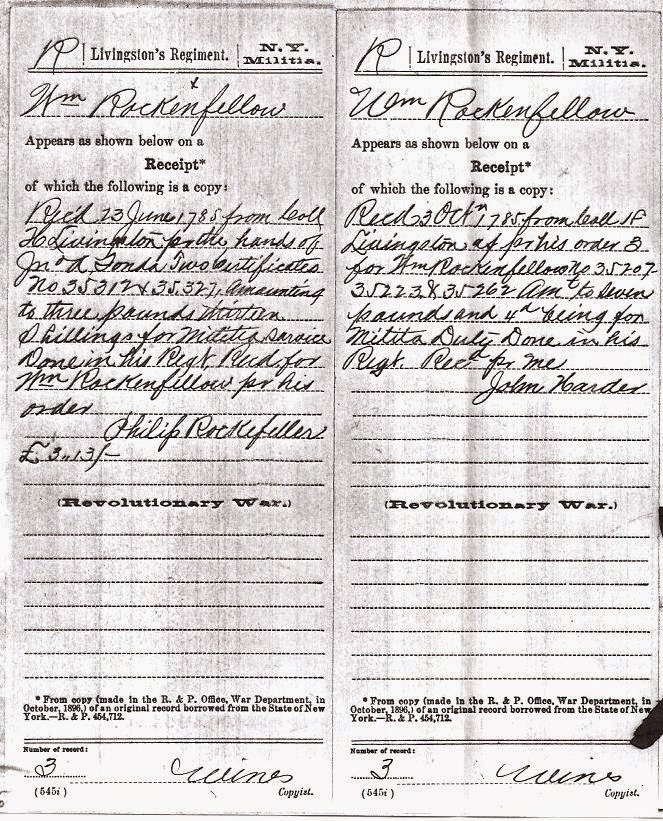 R | Livingston's Regiment. | N. Y. Militia.
Wm Rockenfellow
Appears as shown below on a
Receipt*
of which the following is a copy:
Rec'd 23 June 1785 from Coll
H Livingston pr the hands of
Jno A Fonda Two Certificates
No 35312 & 35327, amounting
to three pounds thirteen
Shillings for Militia Service
Done in his Regt Recd. for
Wm Rockenfellow pr his
order
Philip Rockefeller
£3.13/-
(Revolutionary War.)
*From copy (made in the R. & P. Office, War Department, in
October, 1896,) of an original record borrowed from the State of New
York.—R. & P. 454,712.
Number of record:
3
Wines
(545i) Copyist.
R | Livingston's Regiment. | N. Y. Militia.
Wm Rockenfellow
Appears as shown below on a
Receipt*
of which the following is a copy:
Recd 3 Octr 1785 from Coll H
Livingston as pr his order 3
for Wm Rockenfellow No 35207
35223 & 35262 Amt to Seven
pounds and 4d being for
Militia Duty Done in his
Regt. Recd pr me
John Harder
(Revolutionary War.)
*From copy (made in the R. & P. Office, War Department, in
October, 1896,) of an original record borrowed from the State of New
York.—R. & P. 454,712.
Number of record:
3
Wines
(545i) Copyist.